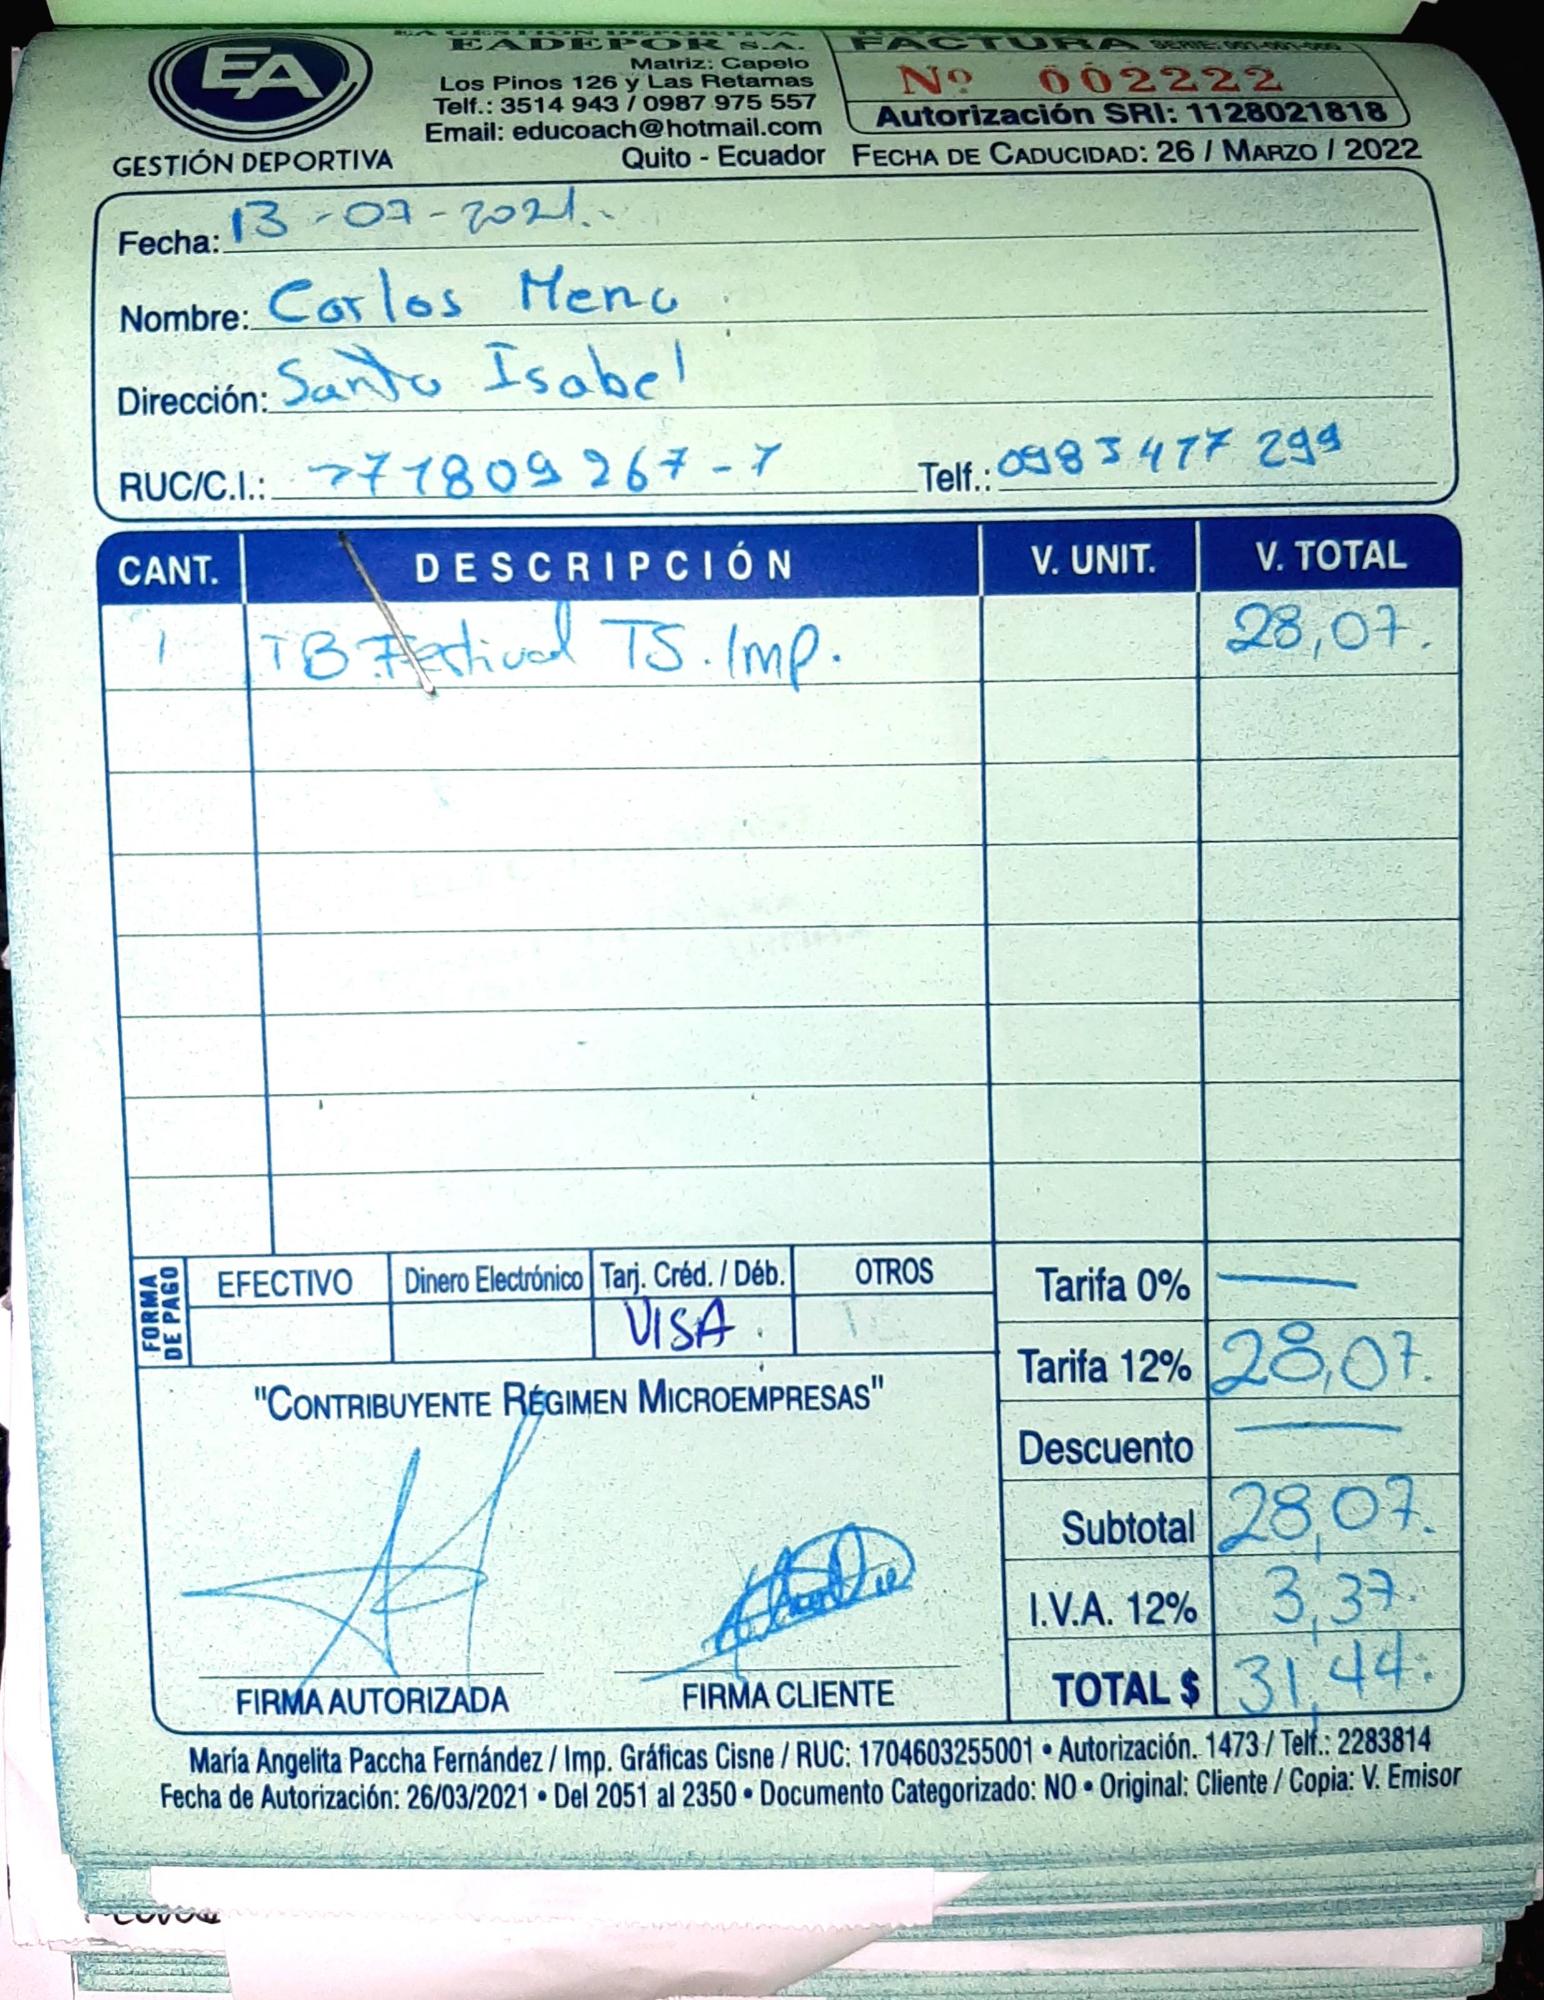 EA
GESTIÓN DEPORTIVA
EA GESTIÓN DEPORTIVA
EADEPOR S.A.
Matriz: Capelo
Los Pinos 126 y Las Retamas
Telf.: 3514 943 / 0987 975 557
Email: educoach@hotmail.com
Quito - Ecuador
FACTURA SERIE: 001-001-000
Nº 002222
Autorización SRI: 1128021818
FECHA DE CADUCIDAD: 26 / MARZO / 2022
Fecha: 13-07-2021.
Nombre: Carlos Mena
Dirección: Santa Isabel
RUC/C.I.: 171809267-7 Telf.: 0983477299
CANT. DESCRIPCIÓN V. UNIT. V. TOTAL
1 TB Festival TS. Imp. 28,07.
FORMA DE PAGO
EFECTIVO Dinero Electrónico Tarj. Créd. / Déb. OTROS
VISA
Tarifa 0% —
Tarifa 12% 28,07.
Descuento —
Subtotal 28,07.
I.V.A. 12% 3,37.
TOTAL $ 31,44.
"CONTRIBUYENTE RÉGIMEN MICROEMPRESAS"
FIRMA AUTORIZADA FIRMA CLIENTE
María Angelita Paccha Fernández / Imp. Gráficas Cisne / RUC: 1704603255001 • Autorización. 1473 / Telf.: 2283814
Fecha de Autorización: 26/03/2021 • Del 2051 al 2350 • Documento Categorizado: NO • Original: Cliente / Copia: V. Emisor